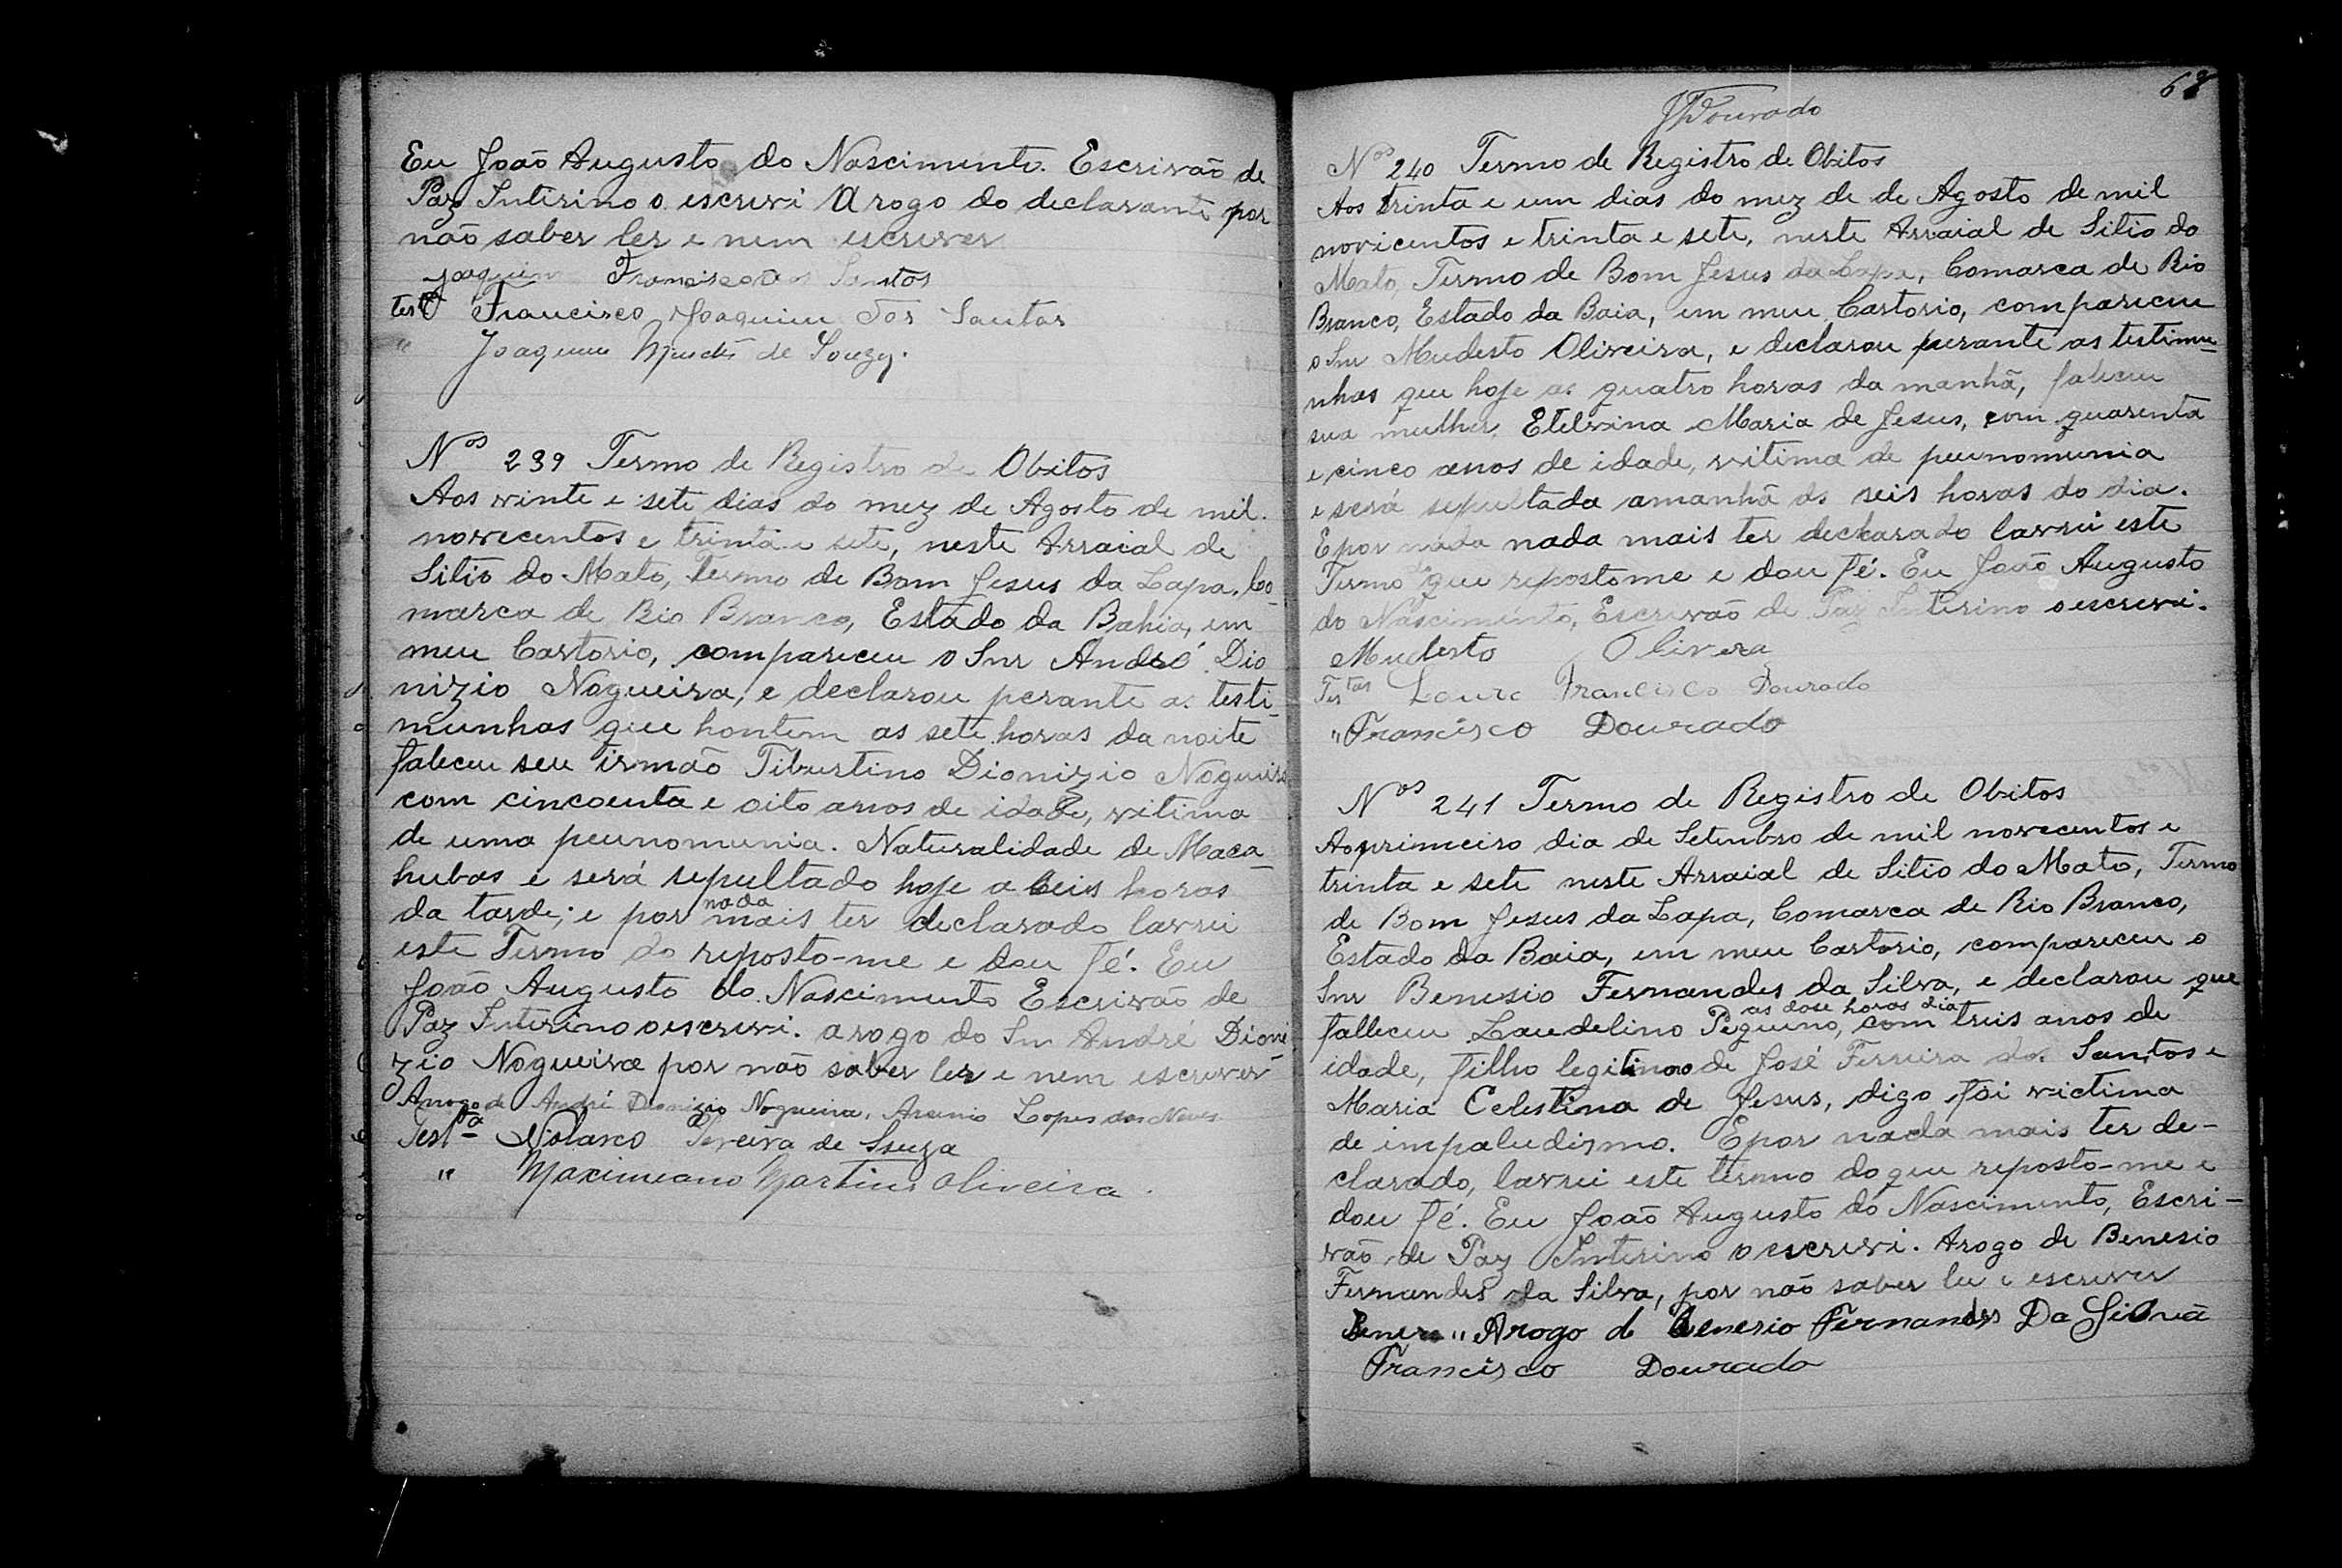 Eu João Augusto do Nascimento. Escrivão de
Paz Interino o escrevi A rogo do declarante por
não saber ler e nem escrever
Joaquim Francisco dos Santos
test Francisco Joaquim dos Santos
" Joaquim Mendes de Souza.
Nos 239 Termo de Registro de Obitos
Aos vinte e sete dias do mez de Agosto de mil
novecentos e trinta e sete, neste Arraial de
Sitio do Mato, Termo de Bom Jesus da Lapa, Co-
marca de Rio Branco, Estado da Bahia, em
meu Cartorio, compareceu o Snr André Dio
nizio Nogueira, e declarou perante as testi-
munhas que hontem as sete horas da noite
faleceu seu irmão Tiburtino Dionizio Nogueira
com cincoenta e oito anos de idade, vitima
de uma peunomunia. Naturalidade de Maca-
hubas e será sepultado hoje a seis horas
da tarde; e por nada mais ter declarado lavrei
este Termo do reposto-me e dou fé. Eu
João Augusto do Nascimento Escrivão de
Paz Interino o escrevi. a rogo do Snr André Dioni
zio Nogueira por não saber ler e nem escrever
Arrogo de André Dionizio Nogueira, Arsenio Lopes das Neves
Testa Nolasco Pereira de Souza
" Maximeano Martins Oliveira.
68
JFDourado
Nos 240 Termo de Registro de Obitos
Aos trinta e um dias do mez de de Agosto de mil
novicentos e trinta e sete, neste Arraial de Sitio do
Mato, Termo de Bom Jesus da Lapa, Comarca de Rio
Branco, Estado da Baia, em meu Cartorio, compareceu
o Snr Mudesto Oliveira, e declarou perante as testimu-
nhas que hoje as quatro horas da manhã, faleceu
sua mulher, Etelvina Maria de Jesus, com quarenta
e cinco anos de idade, vitima de peunomunia
e será sepultada amanhã as seis horas do dia.
E por nada nada mais ter declarado lavrei este
Termo do que repostome e dou fé. Eu João Augusto
do Nascimento, Escrivão de Paz Interino o escrevi.
Mudesto Olivera
Testas Louro Francisco Dourado
" Francisco Dourado
Nos 241 Termo de Registro de Obitos
Ao primeiro dia de Setembro de mil novecentos e
trinta e sete neste Arraial de Sitio do Mato, Termo
de Bom Jesus da Lapa, Comarca de Rio Branco,
Estado da Baia, em meu Cartorio, compareceu o
Snr Benesio Fernandes da Silva, e declarou que
as dose horas dia
falleceu Laudelino Pequeno, com treis anos de
idade, filho legitimo de José Ferreira dos Santos e
Maria Celestina de Jesus, digo foi victima
de impaludizmo. E por nada mais ter de-
clarado, lavrei este termo do que reposto-me e
dou fé. Eu João Augusto do Nascimento, Escri-
vão de Paz Interino o escrevi. Arogo de Benesio
Fernandes da Silva, por não saber ler e escrever
" Arogo d Benesio Fernandes Da Silva
Francisco Dourado